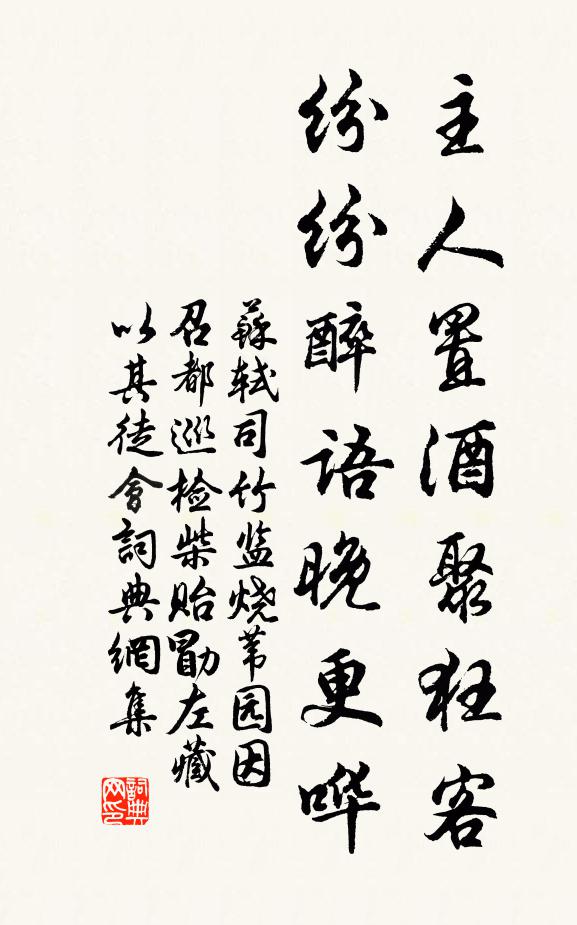 主人置酒聚狂客
纷纷醉语晚更哗
蘇轼司竹监烧苇园因
召都巡检柴贻勖左藏
以其徒會詞典網集
詞典网印